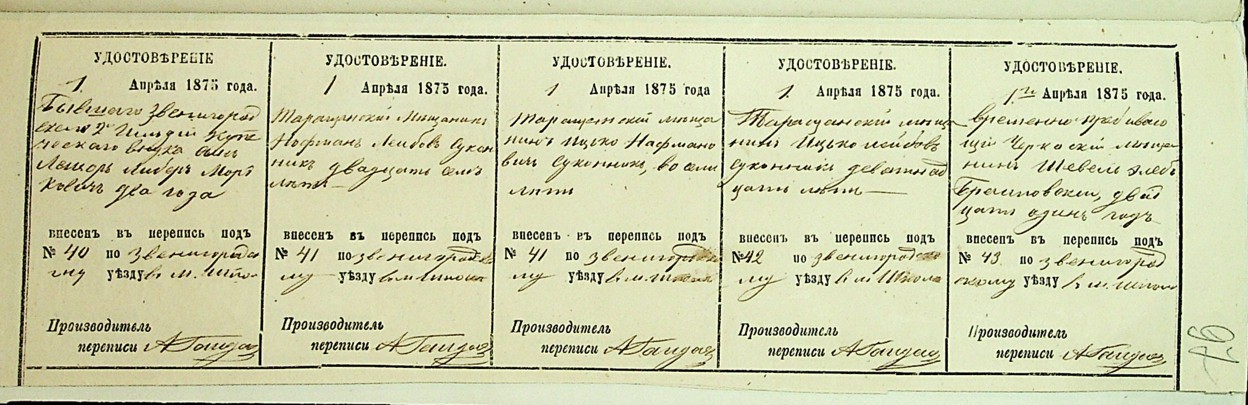 УДОСТОВѢРЕНІЕ
1 Апрѣля 1875 года.
Бывшаго Звенигород
скаго 2й Гильдіи Купе
ческаго внука сынъ
Лейзоръ Либеръ Морт
ковичъ два года
внесенъ въ перепись подъ
№ 40 по Звенигородско
му уѣзду в м.
Производитель
переписи АГандза
УДОСТОВѢРЕНІЕ.
1 Апрѣля 1875 года.
Таращанскій Мѣщанинъ
Нафманъ Лейбовъ Сукон
никъ двадцать семь
лѣтъ
внесенъ въ перепись подъ
№ 41 по Звенигородско
му уѣзду в м.
Производитель
переписи АГандза
УДОСТОВѢРЕНІЕ.
1 Апрѣля 1875 года
Таращанскій мѣща
нинъ Ицько Нафмано
вичъ Суконникъ, восемь
лѣтъ
внесенъ въ перепись подъ
№ 41 по Звенигородско
му уѣзду в м.
Производитель
переписи АГандза
УДОСТОВѢРЕНІЕ.
1 Апрѣля 1875 года.
Таращанскій мѣща
нинъ Ицько Лейбовъ
Суконникъ девятнад
цать лѣтъ
внесенъ въ перепись подъ
№ 42 по Звенигородско
му уѣзду в м Шпола
Производитель
переписи АГандза
УДОСТОВѢРЕНІЕ.
1го Апрѣля 1875 года.
временно пребываю
щій Черкаскій мѣща
нинъ Шевель
двад
цать одинъ годъ
внесенъ въ перепись подъ
№ 43 по Звенигород
скому уѣзду в м. Шпола
Производитель
переписи АГандза